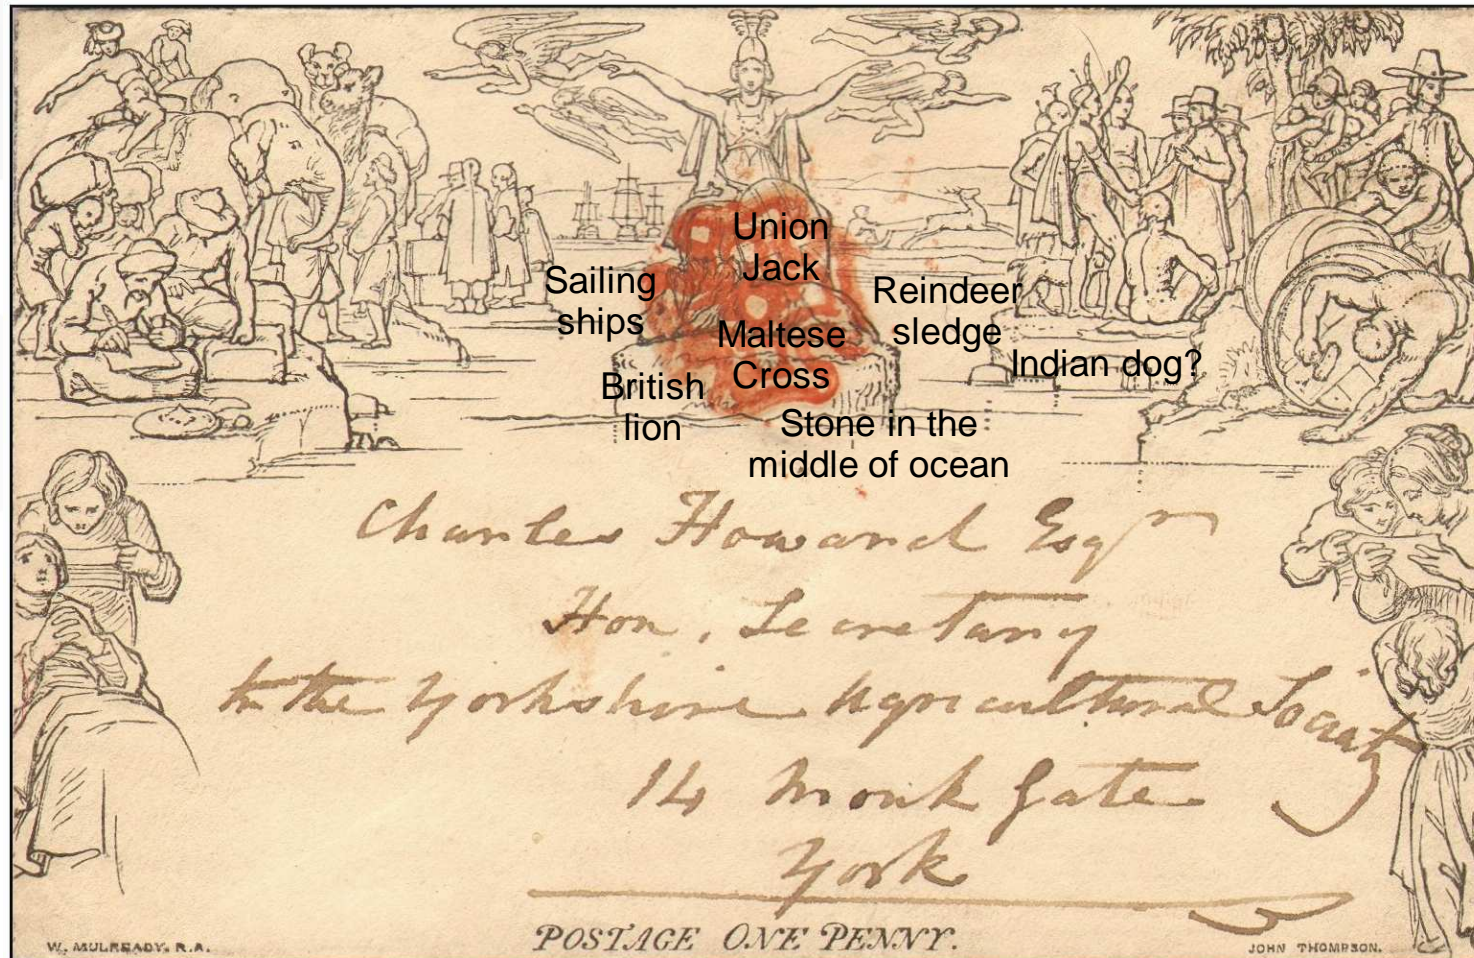 Union
Jack
Sailing
ships
Reindeer
sledge
Maltese
Cross
Indian dog?
British
lion
Stone in the
middle of ocean
Charles Howard Esqr
Hon. Secretary
to the Yorkshire Agricultural Society
14 Monk Gate
York
POSTAGE ONE PENNY.
W. MULREADY. R.A.
JOHN THOMPSON.